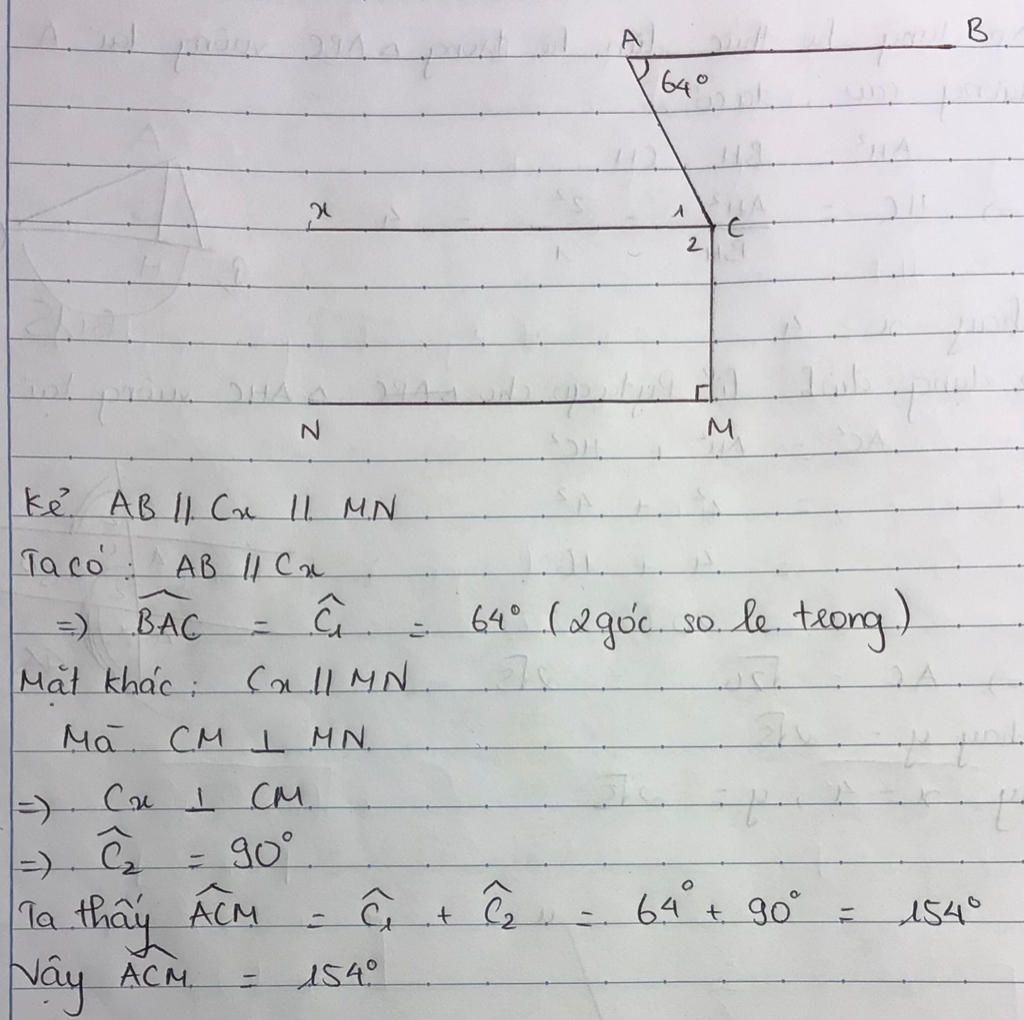 A B
64°
x 1 C
2
N M
Kẻ AB // Cx // MN
Ta có: AB // Cx
=) BAC = Ĉ₁ = 64° (2 góc so le trong)
Mặt khác: Cx // MN
Mà CM ⊥ MN
=) Cx ⊥ CM
=) Ĉ₂ = 90°
Ta thấy ACM = Ĉ₁ + Ĉ₂ = 64° + 90° = 154°
Vậy ACM = 154°